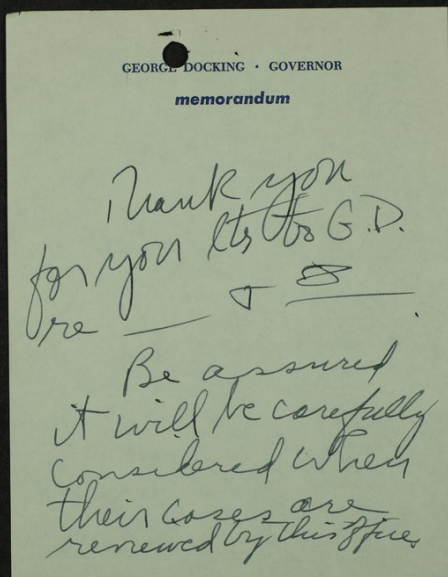 GEORGE DOCKING · GOVERNOR
memorandum
Thank you
for your ltr to G.D.
re ____ + ____
Be assured
it will be carefully
considered when
their cases are
reviewed by this office